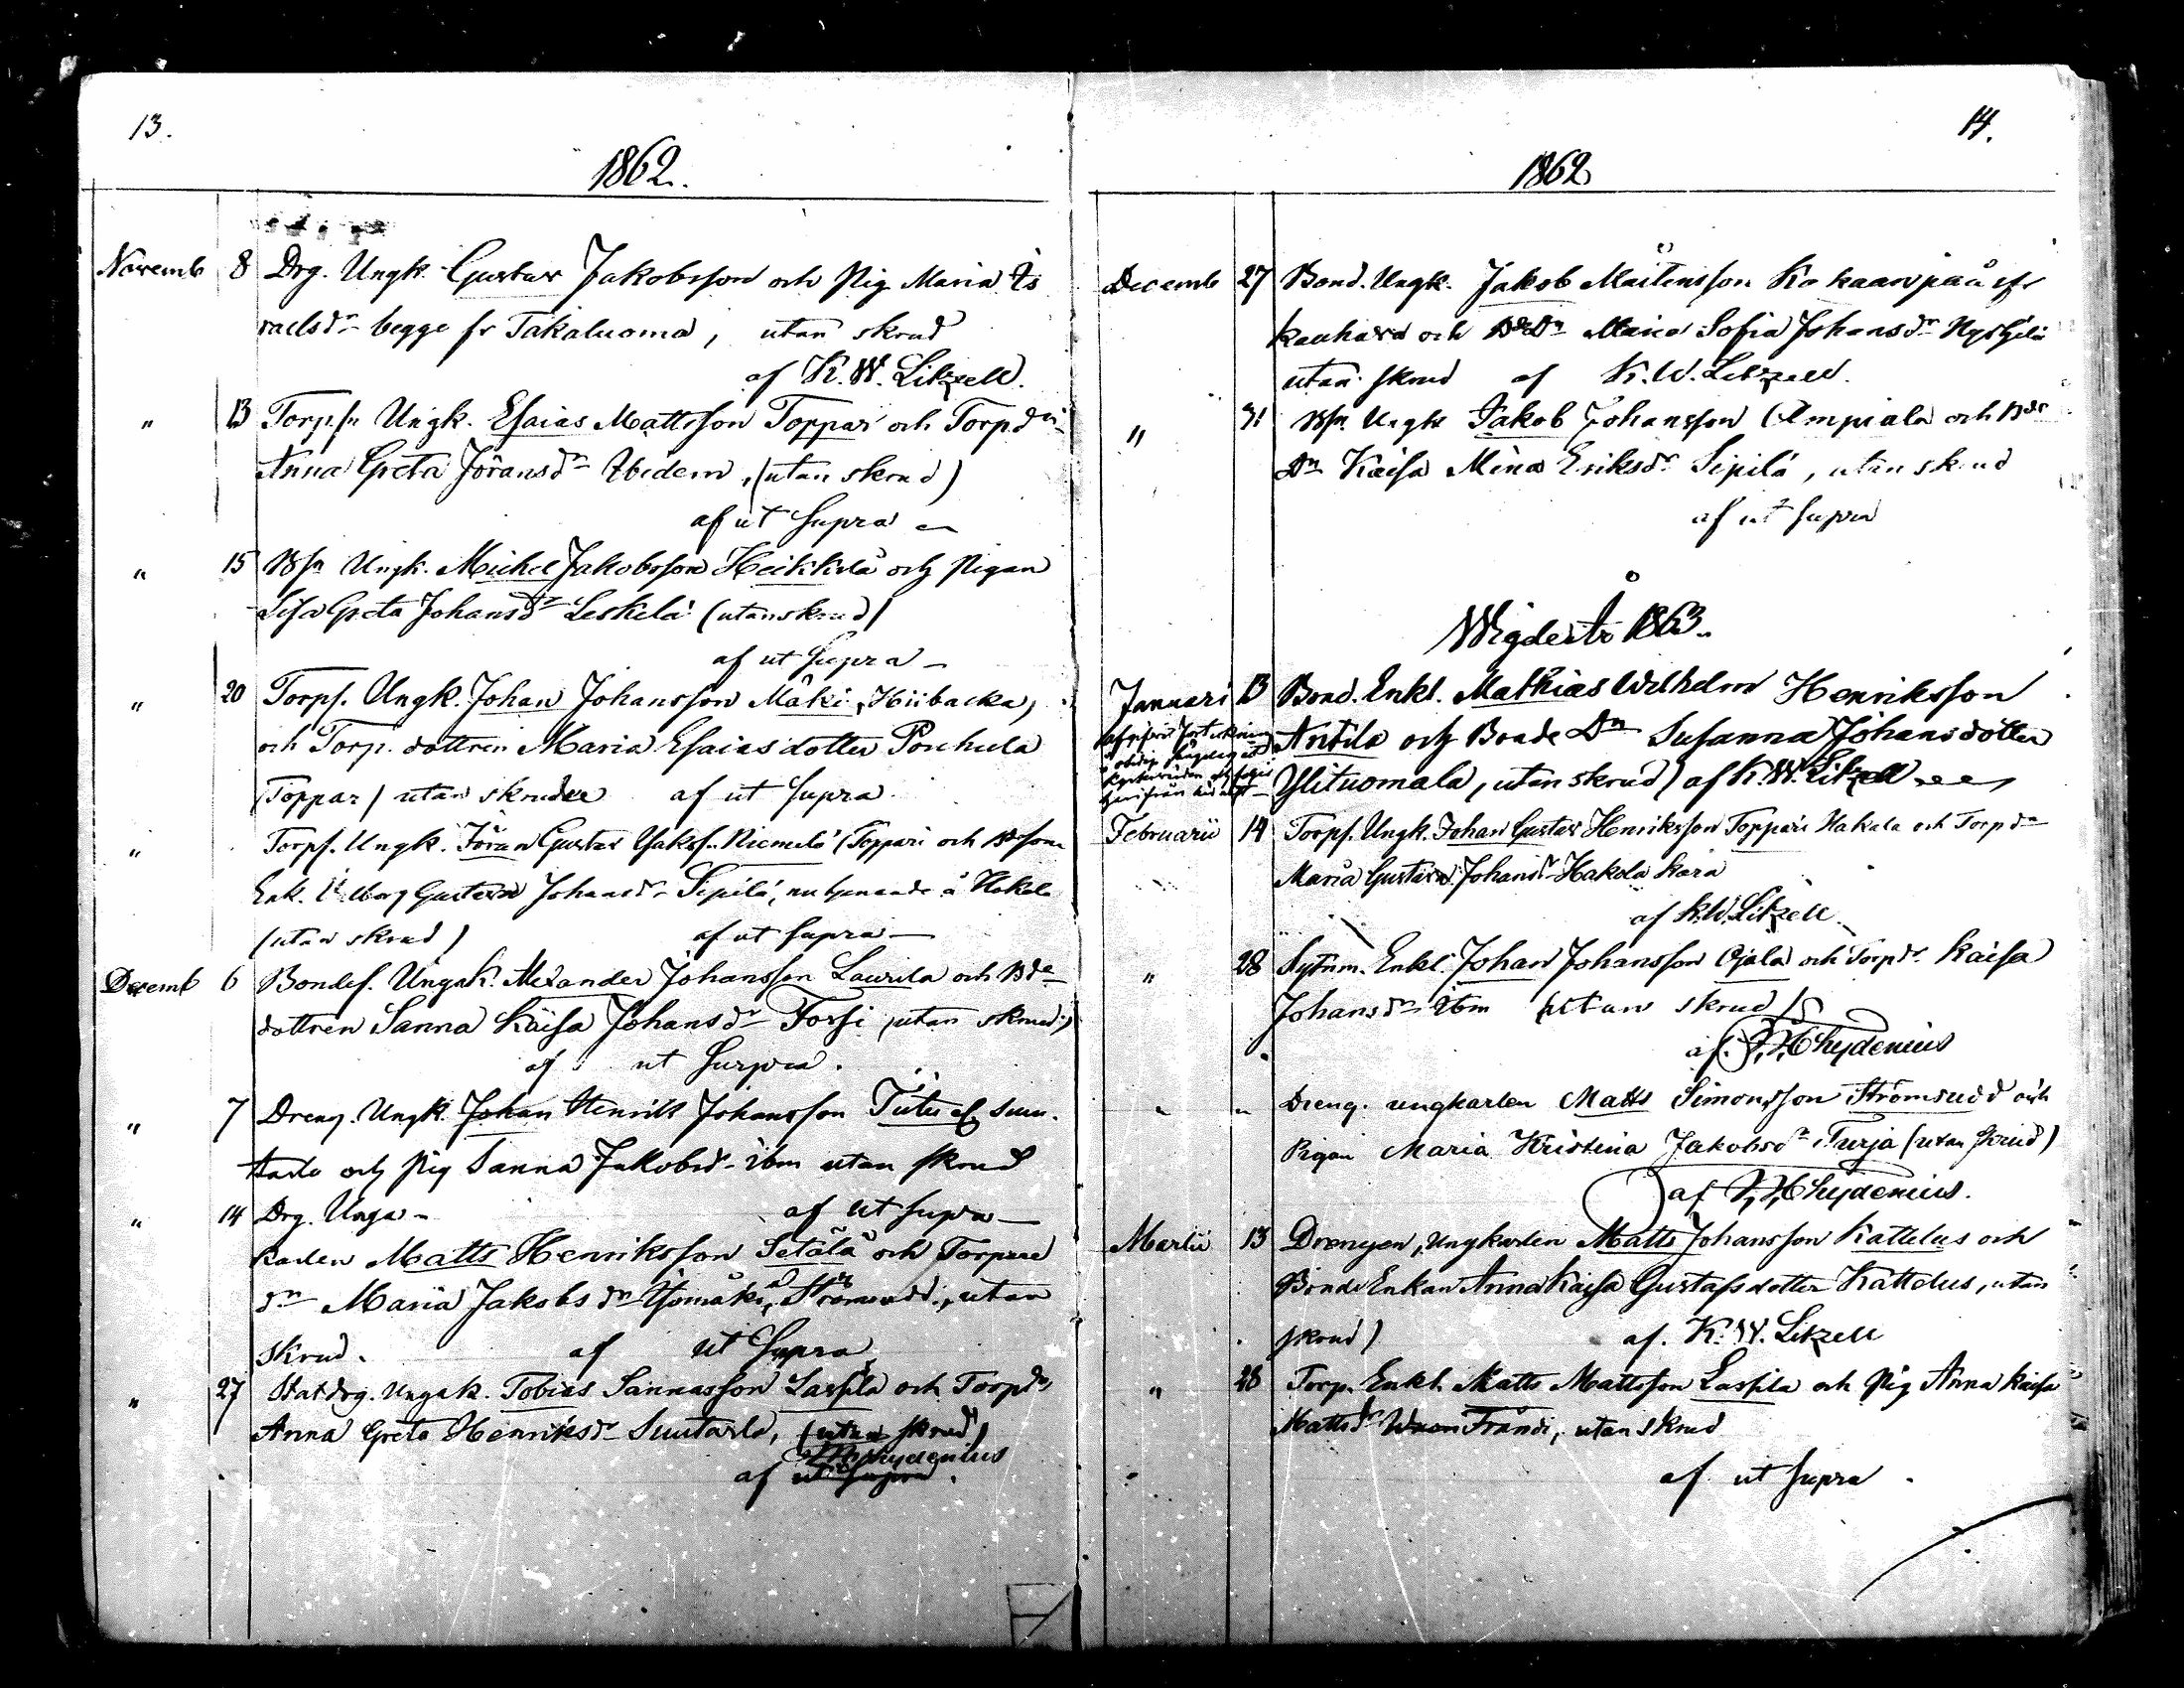 13.
1862.
Novemb 8 Drg. Ungk. Gustav Jakobsson och Pig Maria Is
raelsdr begge fr Takaluoma, utan skrud
af K. W. Litzell.
" 13 Torp.sn Ungk. Esaias Mattsson Toppari och Torpdn
Anna Greta Jöransdr Ibidem, (utan skrud)
af ut supra
" 15 Bsn Ungk. Michel Jakobsson Heikkilä och Pigan
Lisa Greta Johansdr Leskelä (utan skrud)
af ut supra
" 20 Torps. Ungk. Johan Johansson Mäki, Hiibacka,
och Torp. dottren Maria Esaias dotter Pouhula
(Toppar) utan skrud af ut supra
" Torps. Ungk. Jöran Gustav Isaks. Niemelä (Toppari och
Enk. Gustava Johansdr Sipilä, nu tjenande å Hakola
(utan skrud) af ut supra
Decemb 6 Bondes. Ungk. Alexander Johansson Laurila och Bde
dottren Sanna Kaisa Johansdr Forsi, utan skrud,
af ut Surpra.
" 7 Dreng. Ungk. Johan Henrik Johansson Tiitu af Suu-
tarla och Pig Sanna Jakobsd. ibm utan skrud
af ut supra
" 14 Drg. Unga-
karlen Matts Henriksson Setälä och Torpare
dn Maria Jakobs dr Yömäki, Strömsudd., utan
skrud. af ut Supra
" 27 Statdrg. Ungk. Tobias Sannasson Lassila och Torpdn
Anna Greta Henriksdr Suutarla, (utan skrud)
Chydenius
af ut supra.
14.
1862
Decemb 27 Bond. Ungk. Jakob Mårtensson Ko kaanpää fr
Kauhava och Bdedn Maria Sofia Johansdr Nyrhjlä
utan skrud af K. W. Litzell.
" 31 Bsn Ungk Jakob Johansson Ampiala och Bde
Dn Kaisa Mina Eriksdr Sipilä, utan skrud
af ut supra
Wigde År 1863.
Januari 13 Bond. Enkl. Mathias Wilhelm Henriksson
Antila och Bonde Dn Susanna Johansdotter
Ylituomala, utan skrud) af K. W. Litzell
Februarii 14 Torps. Ungk. Johan Gustav Henriksson Toppari Hakala och Torp dn
Maria Gustava Johansdr Hakola Kara
af K.W. Litzell.
" 28 Sytnm. Enkl. Johan Johansson Ojala och Torpdr. Kaisa
Johansdr ibm (utan skrud)
af. Chydenius
" " Dreng. ungkarlen Matts Simonsson Strömsudd och
Pigan Maria Kristina Jakobsdr Turja (utan skrud)
af Chydenius.
Martii 13 Drengen, Ungkarlen Matts Johansson Kattelus och
Bonde Enkan Anna Kaisa Gustafsdotter Kattelus, utan
skrud) af. K. W. Litzell
" 28 Torp. Enkl. Matts Mattsson Lassila och Pig Anna Kaisa
Mattsdr Frändi, utan skrud
af ut supra